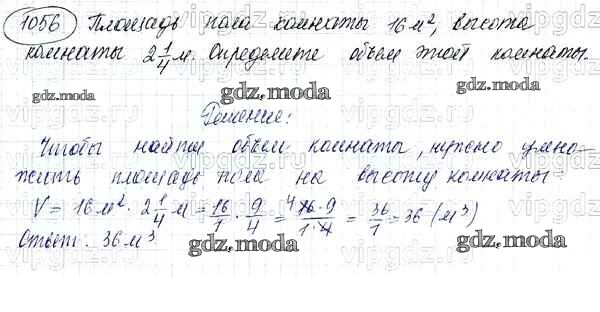 1056 Площадь пола комнаты 16 м², высота
комнаты 2 1/4 м. Определите объем этой комнаты.
gdz.moda gdz.moda gdz.moda
Решение:
Чтобы найти объем комнаты, нужно умно-
жить площадь пола на высоту комнаты
V = 16 м² · 2 1/4 м = 16/1 · 9/4 = 4 16·9/1·4 = 36/1 = 36 (м³)
Ответ: 36 м³
gdz.moda gdz.moda